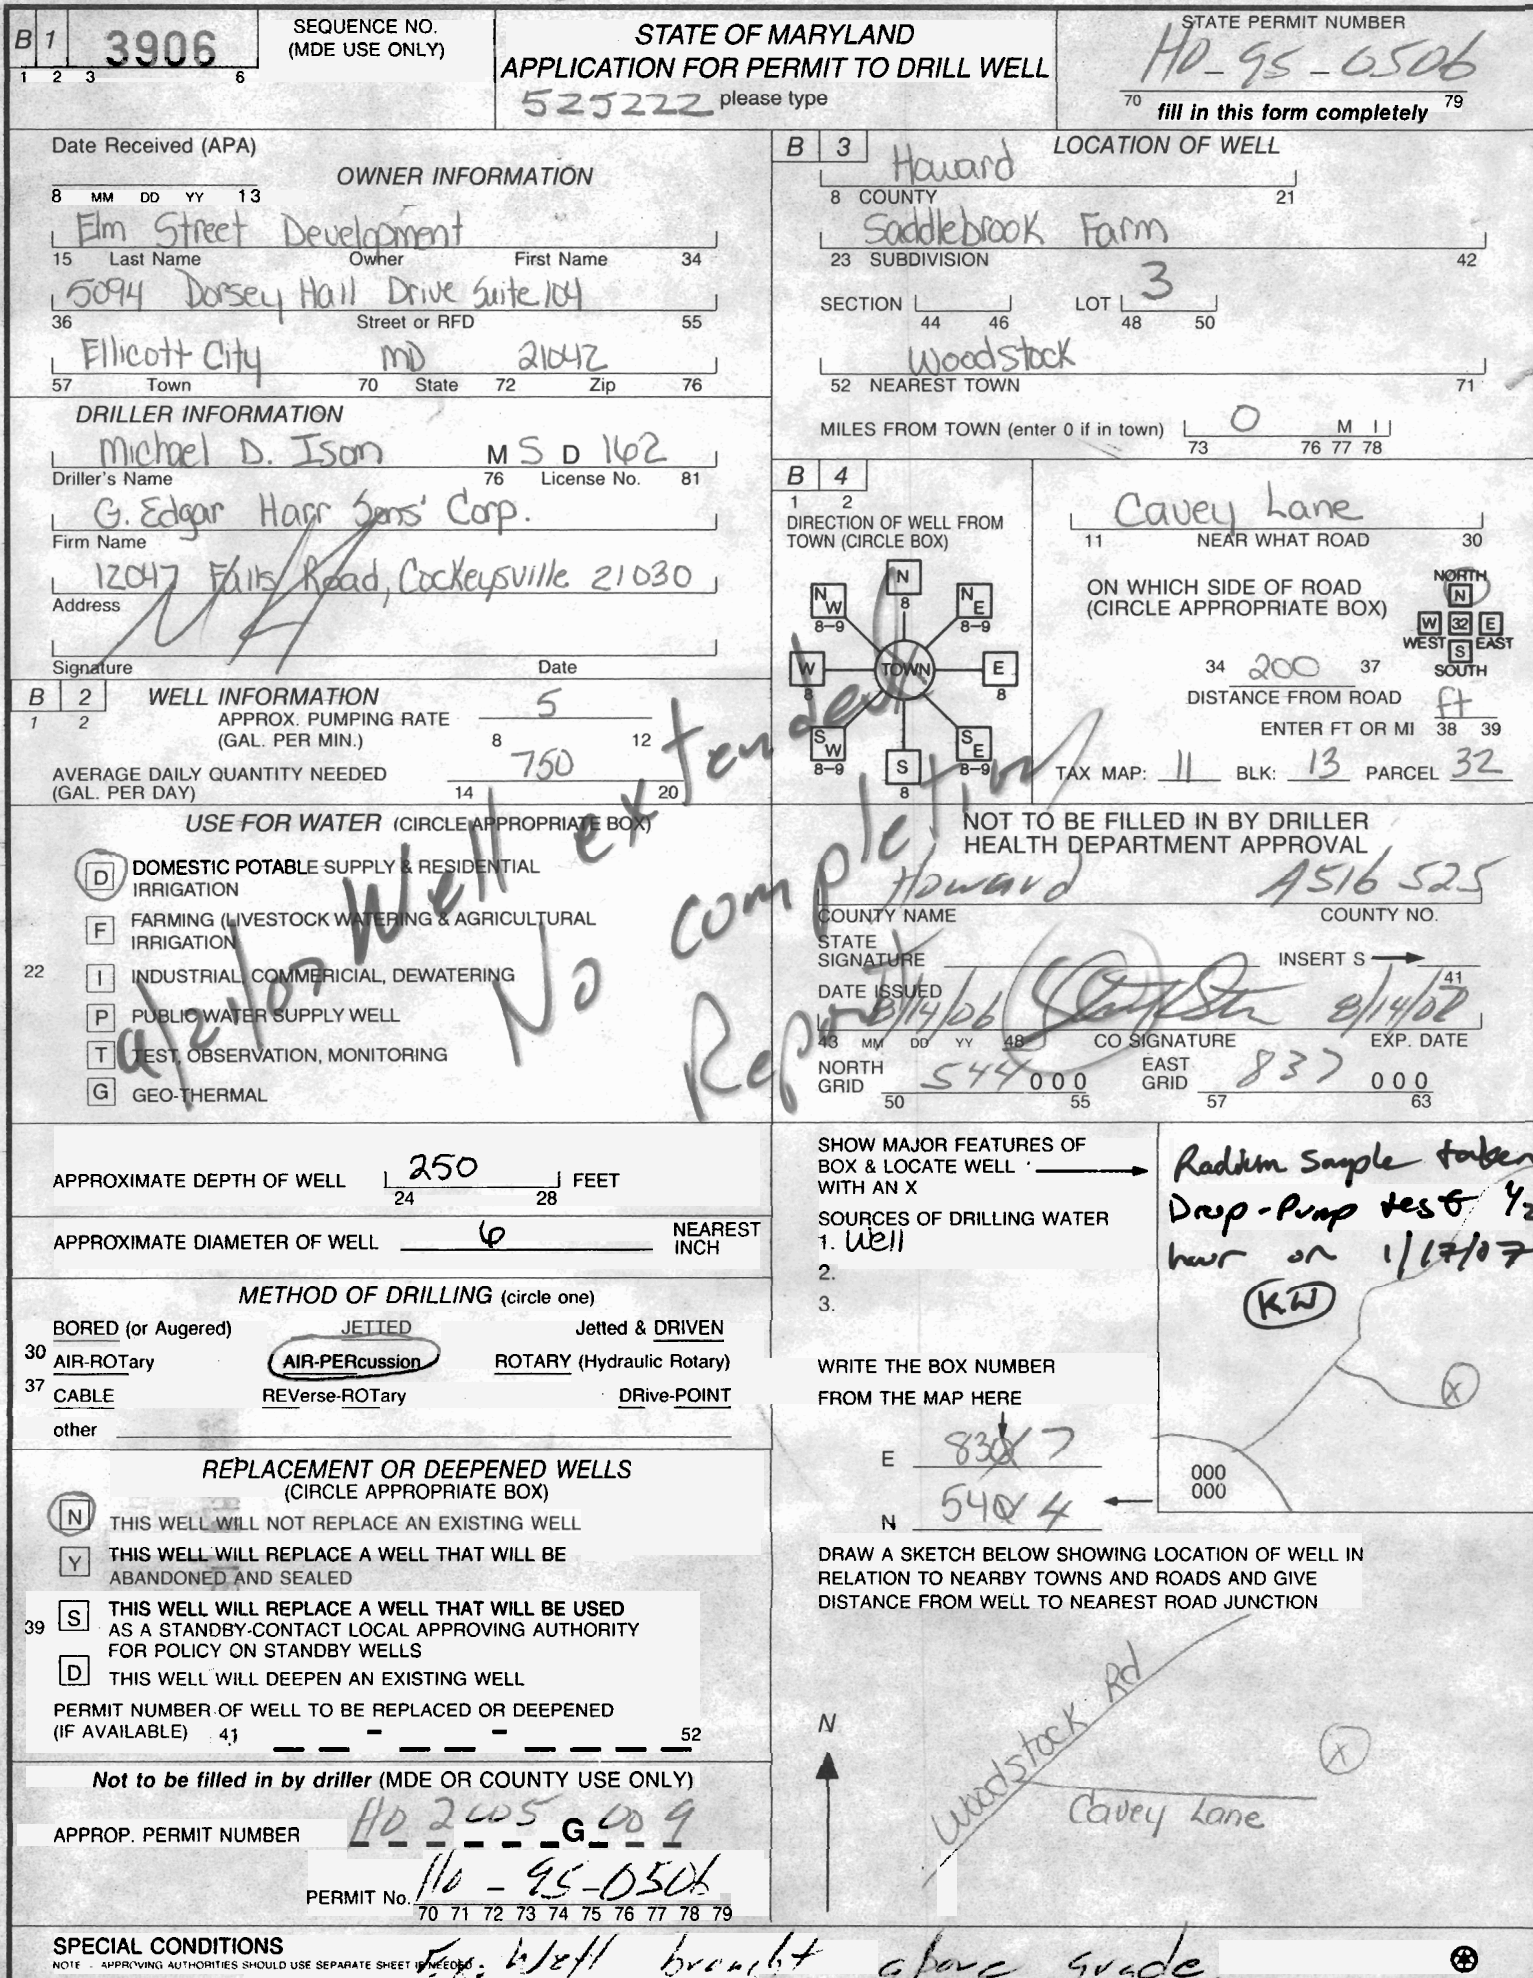 B 1 3906
1 2 3 6
SEQUENCE NO.
(MDE USE ONLY)
STATE OF MARYLAND
APPLICATION FOR PERMIT TO DRILL WELL
525222 please type
STATE PERMIT NUMBER
HO-95-0506
70 fill in this form completely 79
Date Received (APA)
OWNER INFORMATION
8 MM DD YY 13
Elm Street Development
15 Last Name Owner First Name 34
5094 Dorsey Hall Drive Suite 104
36 Street or RFD 55
Ellicott City MD 21042
57 Town 70 State 72 Zip 76
DRILLER INFORMATION
Michael D. Ison M S D 162
Driller's Name 76 License No. 81
G. Edgar Harr Sons' Corp.
Firm Name
12047 Falls Road, Cockeysville 21030
Address
Signature Date
B 2 WELL INFORMATION
1 2
APPROX. PUMPING RATE 5
(GAL. PER MIN.) 8 12
AVERAGE DAILY QUANTITY NEEDED 750
(GAL. PER DAY) 14 20
USE FOR WATER (CIRCLE APPROPRIATE BOX)
D DOMESTIC POTABLE SUPPLY & RESIDENTIAL
IRRIGATION
F FARMING (LIVESTOCK WATERING & AGRICULTURAL
IRRIGATION
22 I INDUSTRIAL, COMMERICIAL, DEWATERING
P PUBLIC WATER SUPPLY WELL
T TEST, OBSERVATION, MONITORING
G GEO-THERMAL
Well extended
No completion
Report
APPROXIMATE DEPTH OF WELL 250 FEET
24 28
APPROXIMATE DIAMETER OF WELL 6 NEAREST
INCH
METHOD OF DRILLING (circle one)
BORED (or Augered) JETTED Jetted & DRIVEN
30 AIR-ROTary AIR-PERcussion ROTARY (Hydraulic Rotary)
37 CABLE REVerse-ROTary DRive-POINT
other
REPLACEMENT OR DEEPENED WELLS
(CIRCLE APPROPRIATE BOX)
N THIS WELL WILL NOT REPLACE AN EXISTING WELL
Y THIS WELL WILL REPLACE A WELL THAT WILL BE
ABANDONED AND SEALED
39 S THIS WELL WILL REPLACE A WELL THAT WILL BE USED
AS A STANDBY-CONTACT LOCAL APPROVING AUTHORITY
FOR POLICY ON STANDBY WELLS
D THIS WELL WILL DEEPEN AN EXISTING WELL
PERMIT NUMBER OF WELL TO BE REPLACED OR DEEPENED
(IF AVAILABLE) 41 - - 52
Not to be filled in by driller (MDE OR COUNTY USE ONLY)
APPROP. PERMIT NUMBER HO 2005 G 009
PERMIT No. HO - 95-0506
70 71 72 73 74 75 76 77 78 79
B 3 LOCATION OF WELL
Howard
8 COUNTY 21
Saddlebrook Farm
23 SUBDIVISION 42
SECTION LOT 3
44 46 48 50
Woodstock
52 NEAREST TOWN 71
MILES FROM TOWN (enter 0 if in town) 0 M I
73 76 77 78
B 4
1 2
DIRECTION OF WELL FROM
TOWN (CIRCLE BOX)
N
8
NW 8-9
NE 8-9
W 8
TOWN
E 8
SW 8-9
SE 8-9
S
8
Cavey Lane
11 NEAR WHAT ROAD 30
ON WHICH SIDE OF ROAD
(CIRCLE APPROPRIATE BOX)
NORTH
N
W 32 E
WEST S EAST
SOUTH
34 200 37
DISTANCE FROM ROAD
ENTER FT OR MI ft
38 39
TAX MAP: 11 BLK: 13 PARCEL 32
NOT TO BE FILLED IN BY DRILLER
HEALTH DEPARTMENT APPROVAL
Howard A516525
COUNTY NAME COUNTY NO.
STATE
SIGNATURE INSERT S
41
DATE ISSUED
8/14/06 8/14/07
43 MM DD YY 48 CO SIGNATURE EXP. DATE
NORTH
GRID 544 000
50 55
EAST
GRID 837 000
57 63
SHOW MAJOR FEATURES OF
BOX & LOCATE WELL
WITH AN X
SOURCES OF DRILLING WATER
1. Well
2.
3.
Radium Sample taken
Drop-Pump test 1/2
hour on 1/17/07
KW
X
WRITE THE BOX NUMBER
FROM THE MAP HERE
E 830 7
N 540 4
000
000
DRAW A SKETCH BELOW SHOWING LOCATION OF WELL IN
RELATION TO NEARBY TOWNS AND ROADS AND GIVE
DISTANCE FROM WELL TO NEAREST ROAD JUNCTION
N
Woodstock Rd
X
Cavey Lane
SPECIAL CONDITIONS
NOTE - APPROVING AUTHORITIES SHOULD USE SEPARATE SHEET IF NEEDED
Well brought above grade